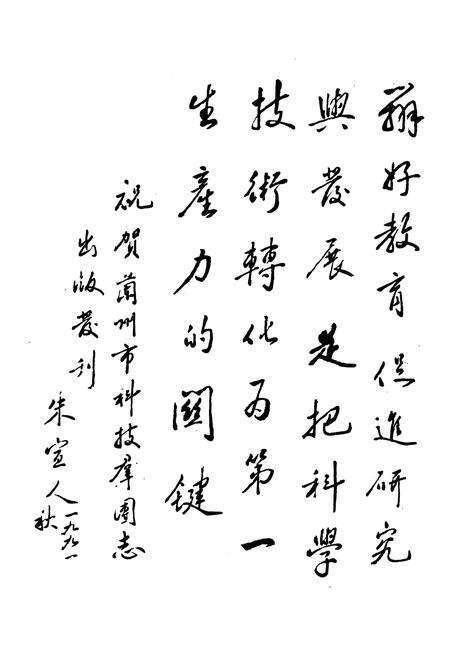 辦好教育促進研究
與發展是把科學
技術轉化為第一
生產力的關鍵
祝賀蘭州市科技群團志
出版發刊
朱宣人
一九九一
秋